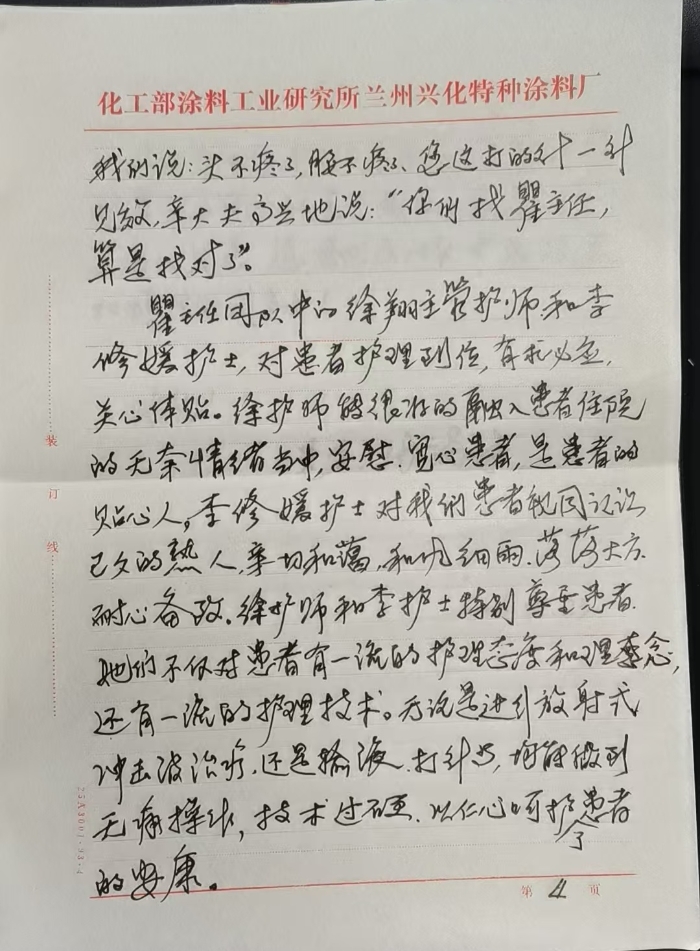 化工部涂料工业研究所兰州兴化特种涂料厂
我们说:头不疼了,腰不疼了、您这打的针一针
见效,辛大夫高兴地说:“你们找瞿主任,
算是找对了”。
瞿主任团队中的徐翔主管护师和李
修媛护士,对患者护理到位,有求必应,
关心体贴。徐护师能很好的融入患者住院
的无奈情绪当中,安慰、宽心患者,是患者的
贴心人,李修媛护士对我们患者视同认识
已久的熟人,亲切和蔼,和风细雨、落落大方、
耐心备致。徐护师和李护士特别尊重患者、
她们不仅对患者有一流的护理态度和理念,
还有一流的护理技术。无论是进行放射式
冲击波治疗、还是输液、打针时,均能做到
无痛操作,技术过硬、以仁心呵护患者
的安康。
装
订
线
第 4 页